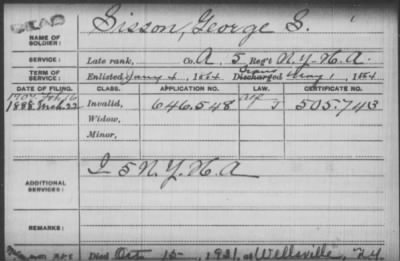 DEAD
NAME OF SOLDIER: Sisson, George S.
SERVICE: Late rank, Co. A, 5 Reg't N.Y.H.A
TERM OF SERVICE: Enlisted Jany 4, 1864 Discharged May 1, 1864
DATE OF FILING. CLASS. APPLICATION NO. LAW. CERTIFICATE NO.
1888 Mch 22 Invalid, 646.548 J 505.743
Widow,
Minor,
ADDITIONAL SERVICES: I 5 N.Y.H.A
REMARKS:
Died Oct 15, 1921, at Wellsville, N.Y.